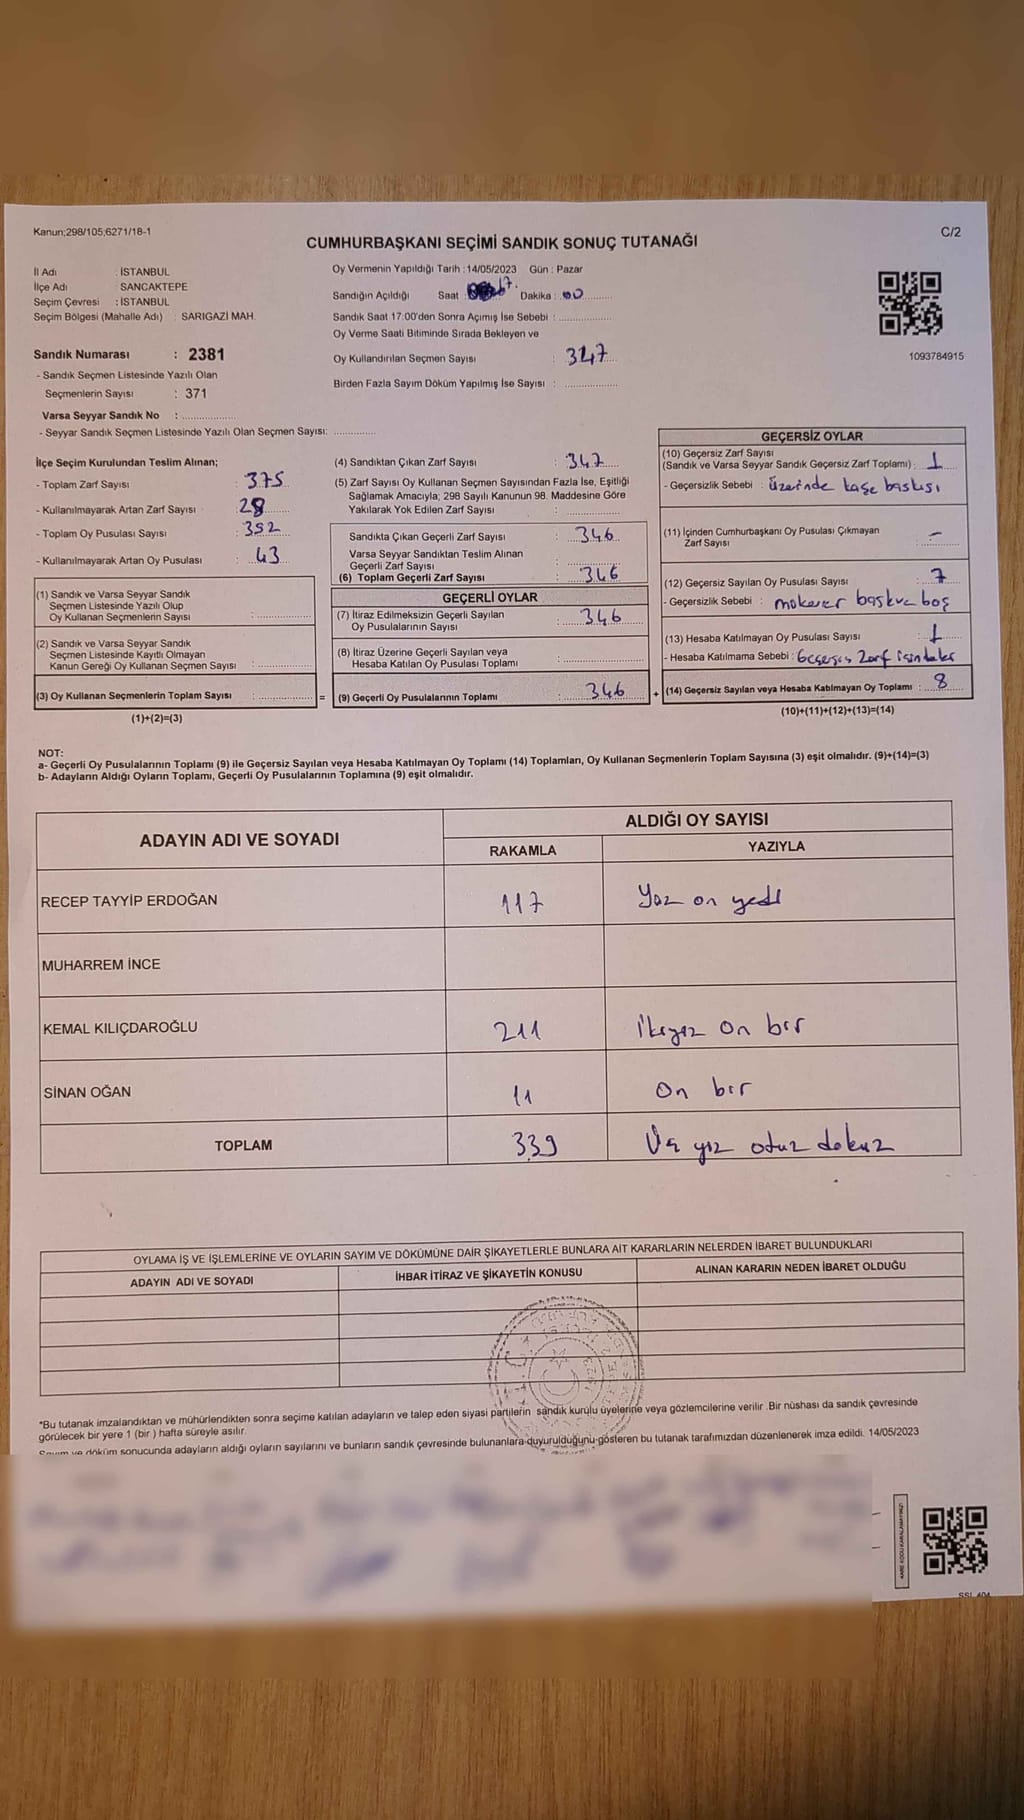 Kanun;298/105;6271/18-1
C/2
CUMHURBAŞKANI SEÇİMİ SANDIK SONUÇ TUTANAĞI
İl Adı : İSTANBUL
İlçe Adı : SANCAKTEPE
Seçim Çevresi : İSTANBUL
Seçim Bölgesi (Mahalle Adı) : SARIGAZİ MAH.
Sandık Numarası : 2381
- Sandık Seçmen Listesinde Yazılı Olan
Seçmenlerin Sayısı : 371
Varsa Seyyar Sandık No :
- Seyyar Sandık Seçmen Listesinde Yazılı Olan Seçmen Sayısı:
Oy Vermenin Yapıldığı Tarih :14/05/2023 Gün : Pazar
Sandığın Açıldığı Saat : 17. Dakika : 00
Sandık Saat 17:00'den Sonra Açımış İse Sebebi :
Oy Verme Saati Bitiminde Sırada Bekleyen ve
Oy Kullandırılan Seçmen Sayısı : 347
Birden Fazla Sayım Döküm Yapılmış İse Sayısı :
1093784915
İlçe Seçim Kurulundan Teslim Alınan;
- Toplam Zarf Sayısı : 375
- Kullanılmayarak Artan Zarf Sayısı : 28
- Toplam Oy Pusulası Sayısı : 392
- Kullanılmayarak Artan Oy Pusulası : 43
(1) Sandık ve Varsa Seyyar Sandık
Seçmen Listesinde Yazılı Olup
Oy Kullanan Seçmenlerin Sayısı :
(2) Sandık ve Varsa Seyyar Sandık
Seçmen Listesinde Kayıtlı Olmayan
Kanun Gereği Oy Kullanan Seçmen Sayısı :
(3) Oy Kullanan Seçmenlerin Toplam Sayısı : =
(1)+(2)=(3)
(4) Sandıktan Çıkan Zarf Sayısı : 347
(5) Zarf Sayısı Oy Kullanan Seçmen Sayısından Fazla İse, Eşitliği
Sağlamak Amacıyla; 298 Sayılı Kanunun 98. Maddesine Göre
Yakılarak Yok Edilen Zarf Sayısı :
Sandıkta Çıkan Geçerli Zarf Sayısı : 346
Varsa Seyyar Sandıktan Teslim Alınan
Geçerli Zarf Sayısı :
(6) Toplam Geçerli Zarf Sayısı : 346
GEÇERLİ OYLAR
(7) İtiraz Edilmeksizin Geçerli Sayılan
Oy Pusulalarının Sayısı : 346
(8) İtiraz Üzerine Geçerli Sayılan veya
Hesaba Katılan Oy Pusulası Toplamı :
(9) Geçerli Oy Pusulalarının Toplamı : 346 +
GEÇERSİZ OYLAR
(10) Geçersiz Zarf Sayısı
(Sandık ve Varsa Seyyar Sandık Geçersiz Zarf Toplamı) : 1
- Geçersizlik Sebebi : Üzerinde kaşe baskısı
(11) İçinden Cumhurbaşkanı Oy Pusulası Çıkmayan
Zarf Sayısı : -
(12) Geçersiz Sayılan Oy Pusulası Sayısı : 7
- Geçersizlik Sebebi : mükerer baskı ve boş
(13) Hesaba Katılmayan Oy Pusulası Sayısı : 1
- Hesaba Katılmama Sebebi : Geçersiz Zarf içindeler
(14) Geçersiz Sayılan veya Hesaba Katılmayan Oy Toplamı : 8
(10)+(11)+(12)+(13)=(14)
NOT:
a- Geçerli Oy Pusulalarının Toplamı (9) ile Geçersiz Sayılan veya Hesaba Katılmayan Oy Toplamı (14) Toplamları, Oy Kullanan Seçmenlerin Toplam Sayısına (3) eşit olmalıdır. (9)+(14)=(3)
b- Adayların Aldığı Oyların Toplamı, Geçerli Oy Pusulalarının Toplamına (9) eşit olmalıdır.
ADAYIN ADI VE SOYADI
ALDIĞI OY SAYISI
RAKAMLA YAZIYLA
RECEP TAYYİP ERDOĞAN 117 Yüz on yedi
MUHARREM İNCE
KEMAL KILIÇDAROĞLU 211 İkiyüz on bir
SİNAN OĞAN 11 On bir
TOPLAM 339 Üç yüz otuz dokuz
OYLAMA İŞ VE İŞLEMLERİNE VE OYLARIN SAYIM VE DÖKÜMÜNE DAİR ŞİKAYETLERLE BUNLARA AİT KARARLARIN NELERDEN İBARET BULUNDUKLARI
ADAYIN ADI VE SOYADI İHBAR İTİRAZ VE ŞİKAYETİN KONUSU ALINAN KARARIN NEDEN İBARET OLDUĞU
*Bu tutanak imzalandıktan ve mühürlendikten sonra seçime katılan adayların ve talep eden siyasi partilerin sandık kurulu üyelerine veya gözlemcilerine verilir .Bir nüshası da sandık çevresinde
görülecek bir yere 1 (bir ) hafta süreyle asılır.
Sayım ve döküm sonucunda adayların aldığı oyların sayılarını ve bunların sandık çevresinde bulunanlara duyurulduğunu gösteren bu tutanak tarafımızdan düzenlenerek imza edildi. 14/05/2023
KARE KODU KARALAMAYINIZ!